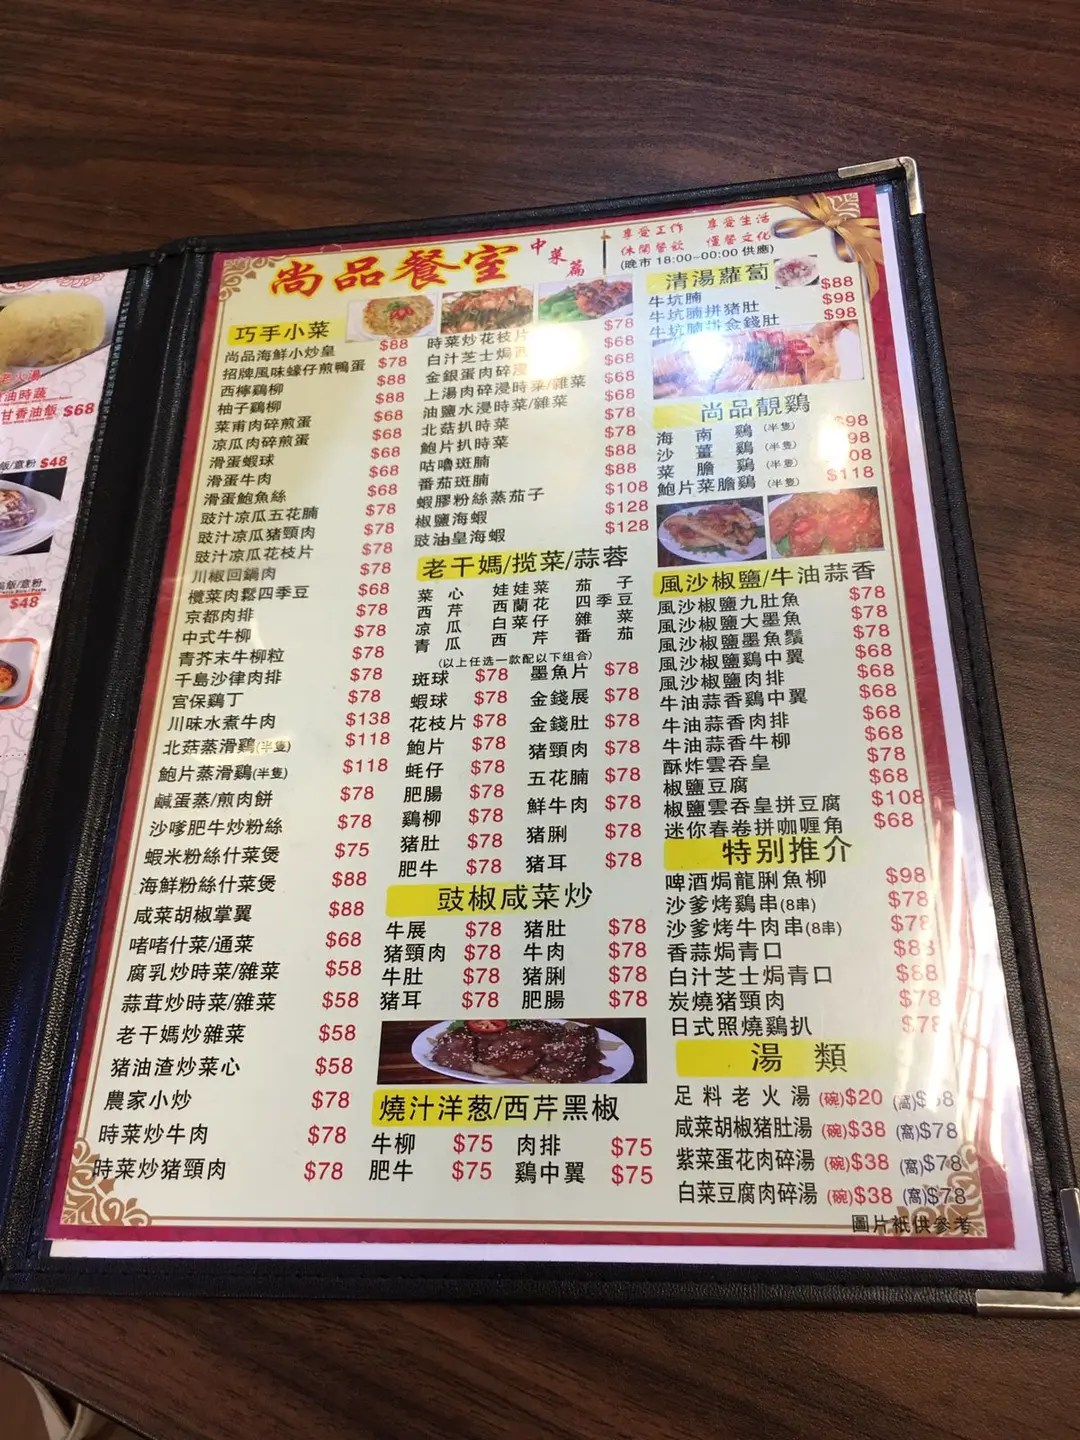 尚品餐室 中菜篇
享受工作 享受生活
休閒餐飲 僅餐文化
(晚市 18:00-00:00 供應)
巧手小菜
尚品海鮮小炒皇 $88
招牌風味蠔仔煎鴨蛋 $78
西檸鷄柳 $88
柚子鷄柳 $88
菜甫肉碎煎蛋 $68
凉瓜肉碎煎蛋 $68
滑蛋蝦球 $68
滑蛋牛肉 $68
滑蛋鮑魚絲 $68
豉汁凉瓜五花腩 $78
豉汁凉瓜猪頸肉 $78
豉汁凉瓜花枝片 $78
川椒回鍋肉 $78
欖菜肉鬆四季豆 $68
京都肉排 $78
中式牛柳 $78
青芥末牛柳粒 $78
千島沙律肉排 $78
宫保鷄丁 $78
川味水煮牛肉 $138
北菇蒸滑鷄(半隻) $118
鮑片蒸滑鷄(半隻) $118
鹹蛋蒸/煎肉餅 $78
沙嗲肥牛炒粉絲 $78
蝦米粉絲什菜煲 $75
海鮮粉絲什菜煲 $88
咸菜胡椒掌翼 $88
啫啫什菜/通菜 $68
腐乳炒時菜/雜菜 $58
蒜茸炒時菜/雜菜 $58
老干媽炒雜菜 $58
猪油渣炒菜心 $58
農家小炒 $78
時菜炒牛肉 $78
時菜炒猪頸肉 $78
時菜炒花枝片 $78
白汁芝士焗西 $68
金銀蛋肉碎浸 $68
上湯肉碎浸時菜/雜菜 $68
油鹽水浸時菜/雜菜 $68
北菇扒時菜 $78
鮑片扒時菜 $78
咕嚕斑腩 $88
番茄斑腩 $88
蝦膠粉絲蒸茄子 $108
椒鹽海蝦 $128
豉油皇海蝦 $128
老干媽/揽菜/蒜蓉
菜心 娃娃菜 茄子
西芹 西蘭花 四季豆
凉瓜 白菜仔 雜菜
青瓜 西芹 番茄
(以上任选一款配以下組合)
斑球 $78 墨魚片 $78
蝦球 $78 金錢展 $78
花枝片 $78 金錢肚 $78
鮑片 $78 猪頸肉 $78
蚝仔 $78 五花腩 $78
肥腸 $78 鮮牛肉 $78
鷄柳 $78 猪脷 $78
猪肚 $78 猪耳 $78
肥牛 $78
豉椒咸菜炒
牛展 $78 猪肚 $78
猪頸肉 $78 牛肉 $78
牛肚 $78 猪脷 $78
猪耳 $78 肥腸 $78
燒汁洋葱/西芹黑椒
牛柳 $75 肉排 $75
肥牛 $75 鷄中翼 $75
清湯蘿蔔
牛坑腩 $88
牛坑腩拼猪肚 $98
牛坑腩拼金錢肚 $98
尚品靚鷄
海南鷄(半隻) $98
沙薑鷄(半隻) 98
菜膽鷄(半隻) 08
鮑片菜膽鷄(半隻) $118
風沙椒鹽/牛油蒜香
風沙椒鹽九肚魚 $78
風沙椒鹽大墨魚 $78
風沙椒鹽墨魚鬚 $78
風沙椒鹽鷄中翼 $68
風沙椒鹽肉排 $68
牛油蒜香鷄中翼 $68
牛油蒜香肉排 $68
牛油蒜香牛柳 $68
酥炸雲吞皇 $78
椒鹽豆腐 $68
椒鹽雲吞皇拼豆腐 $108
迷你春卷拼咖喱角 $68
特别推介
啤酒焗龍脷魚柳 $98
沙爹烤鷄串(8串) $78
沙爹烤牛肉串(8串) $78
香蒜焗青口 $88
白汁芝士焗青口 $88
炭燒猪頸肉 $78
日式照燒鷄扒 $78
湯類
足料老火湯 (碗)$20 (窩)$ 8
咸菜胡椒猪肚湯 (碗)$38 (窩)$78
紫菜蛋花肉碎湯 (碗)$38 (窩)$78
白菜豆腐肉碎湯 (碗)$38 (窩)$78
圖片祇供參考
老火湯
油時蔬
甘香油飯 $68
飯/意粉 $48
飯/意粉
$48